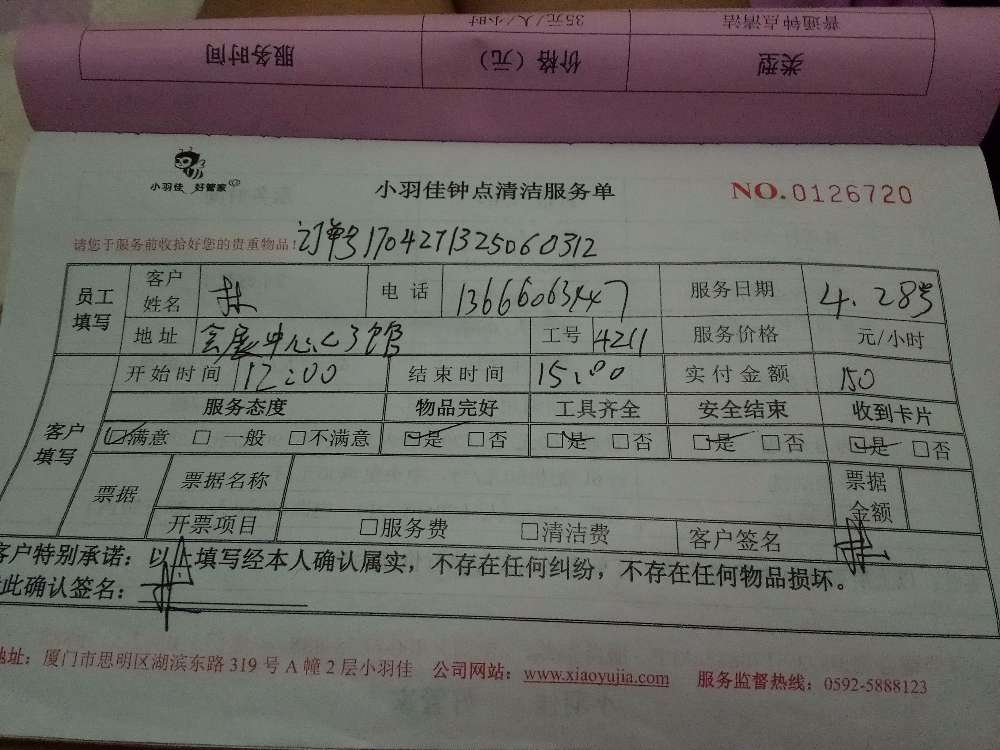 普通钟点清洁 35元/人/小时
类型 价格（元） 服务时间
小羽佳 好管家
小羽佳钟点清洁服务单
NO.0126720
请您于服务前收拾好您的贵重物品！ 订单号170427132506031 2
员工填写 客户姓名 林 电话 13666063447 服务日期 4.28号
地址 会展中心C3馆 工号 4211 服务价格 元/小时
客户填写 开始时间 12:00 结束时间 15:00 实付金额 150
服务态度 物品完好 工具齐全 安全结束 收到卡片
☑满意 □一般 □不满意 ☑是 □否 ☑是 □否 ☑是 □否 ☑是 □否
票据 票据名称 票据金额
开票项目 □服务费 □清洁费 客户签名 林
客户特别承诺：以上填写经本人确认属实，不存在任何纠纷，不存在任何物品损坏。
此确认签名： 林
地址：厦门市思明区湖滨东路 319 号 A 幢 2 层小羽佳 公司网站：www.xiaoyujia.com 服务监督热线：0592-5888123